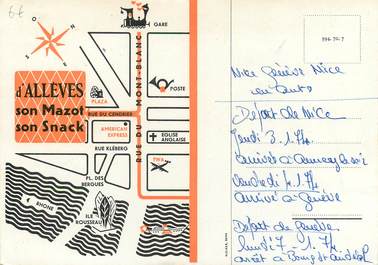 66
GARE
N
O
E
S
d'ALLÈVES
son Mazot
son Snack
PLAZA
RUE DU CENDRIER
AMERICAN
EXPRESS
RUE KLÉBERG
RUE DU MONT-BLANC
POSTE
EGLISE
ANGLAISE
TWA
PL. DES
BERGUES
RHONE
ILE
ROUSSEAU
Nice Genève Nice
en auto
Départ de Nice
Jeudi 3.1.74
arrivés à Annecy le soir
vendredi 4.1.74
arrivé à Genève
Départ de Genève
lundi 7-1.74
arrêt à Bourg St Andéol